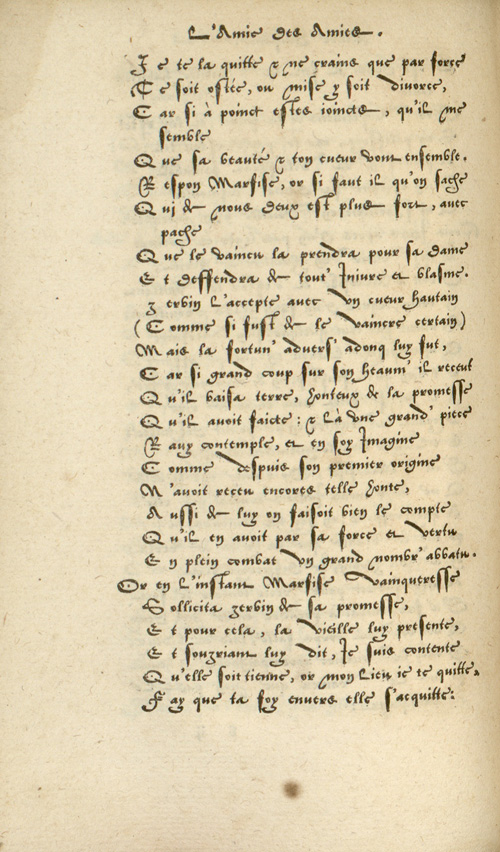 L'Amie des Amies.
Je te la quitte & ne crains que par force
Te soit ostée, ou mise y soit divorce,
Car si à poinct estes ioincts, qu'il me
semble
Que sa beauté & ton cueur vont ensemble.
Respon Marfise, or si faut il qu'on sache
Qui de nous deux est plus fort, avec
pache
Que le vaincu la prendra pour sa dame
Et deffendra de tout' Iniure et blasme.
Zerbin l'accepte avec un cueur hautain
(Comme si fust de le vaincre certain)
Mais la fortun' advers' adonq luy fut,
Car si grand coup sur son heaum' il receut
Qu'il baisa terre, honteux de la promesse
Qu'il avoit faicte: & là une grand' piece
Rauy contemple, et en soy Imagine
Comme despuis son premier origine
N'avoit receu encores telle honte,
Aussi de luy on faisoit bien le compte
Qu'il en avoit par sa force et vertu
En plein combat un grand nombr' abbatu.
Or en l'instant Marfise vainqueresse
Sollicita zerbin de sa promesse,
Et pour cela, la vieille luy presente,
Et souzriant luy dit, Je suis contente
Qu'elle soit tienne, or mon lieu ie te quitte,
Fay que ta foy envers elle s'acquitte: